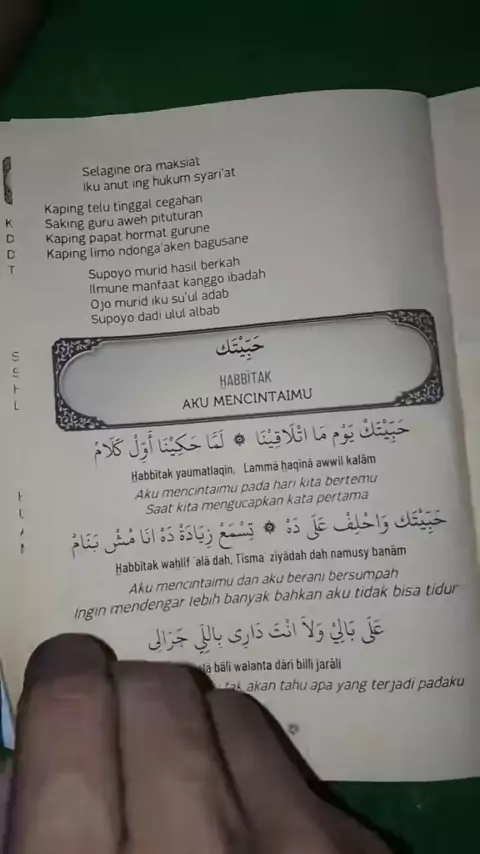 Selagine ora maksiat
Iku anut ing hukum syari'at
Kaping telu tinggal cegahan
Saking guru aweh pituturan
Kaping papat hormat gurune
Kaping limo ndonga'aken bagusane
Supoyo murid hasil berkah
Ilmune manfaat kanggo ibadah
Ojo murid iku su'ul adab
Supoyo dadi ulul albab
K
D
D
T
حَبِّيْتَك
ḤABBÎTAK
AKU MENCINTAIMU
حَبِّيْتَكْ يَوْم مَا اتْلَاقِيْنَا ۞ لَمَّا حَكِيْنَا أَوِّلْ كَلَامْ
Ḥabbîtak yaumatlaqîn, Lammâ ḥaqinâ awwil kalâm
Aku mencintaimu pada hari kita bertemu
Saat kita mengucapkan kata pertama
حَبِّيْتَك وَاحْلِفْ عَلَى دَهْ ۞ تِسْمَعْ زِيَادَةْ دَهْ انَا مُشْ بَنَامْ
Ḥabbîtak waḥlif 'alâ dah, Tisma ziyâdah dah namusy banâm
Aku mencintaimu dan aku berani bersumpah
Ingin mendengar lebih banyak bahkan aku tidak bisa tidur
عَلَى بَالِيْ وَلاَ انْتَ دَارِى بِاللِّي جَرَالِى
bâlî walanta dâri billî jarâlî
akan tahu apa yang terjadi padaku